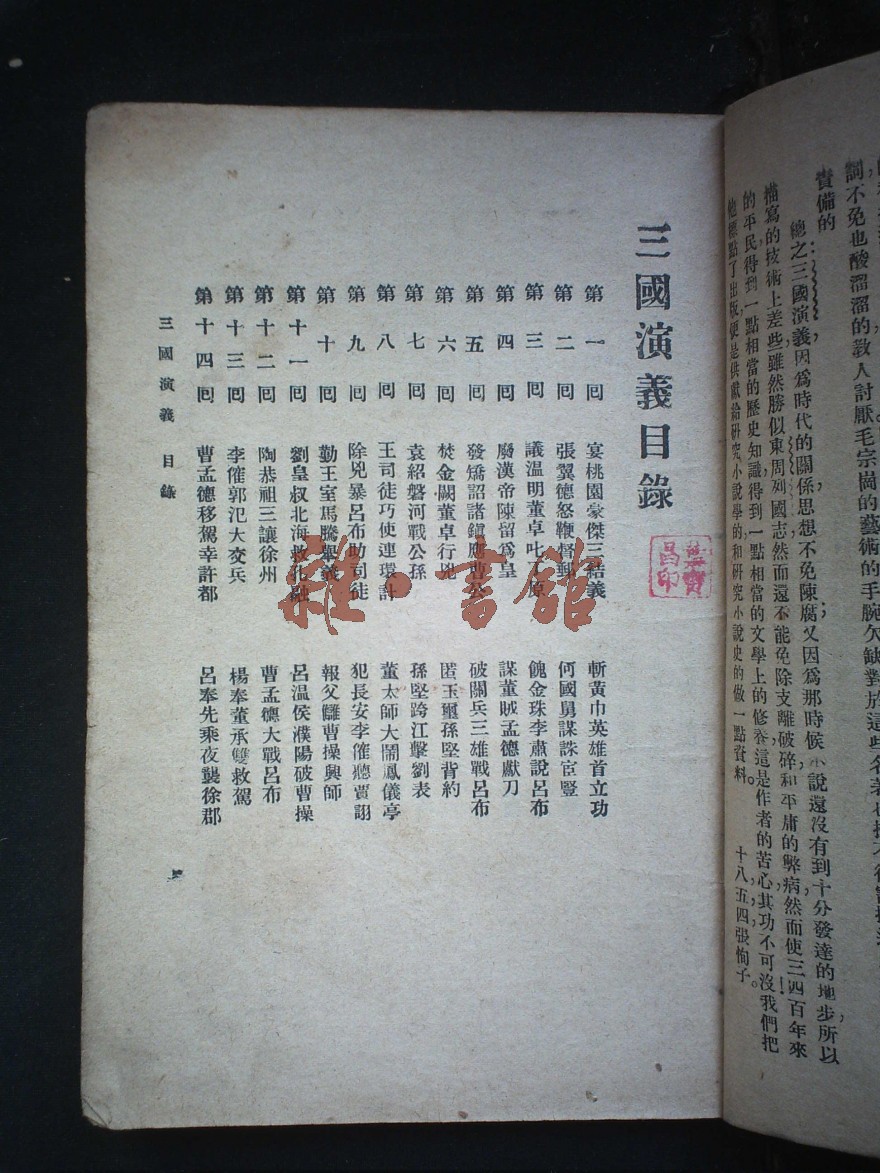 詞不免也酸溜溜的敎人討厭毛宗崗的藝術的手腕欠缺對於這些名著也
責備的。
總之三國演義因爲時代的關係思想不免陳腐又因爲那時候小說還沒有到十分發達的地步所以
描寫的技術上差些雖然勝似東周列國志然而還不能免除支離破碎和平庸的弊病然而使三四百年來
的平民得到一點相當的歷史知識得到一點相當的文學上的修養這是作者的苦心其功不可沒我們把
他標點了出版便是供獻給研究小說學的和研究小說史的做一點資料。 十八五四張恂子。
三國演義目錄
昌印
第一回 宴桃園豪傑三結義 斬黃巾英雄首立功
第二回 張翼德怒鞭督郵 何國舅謀誅宦豎
第三回 議溫明董卓叱丁原 餽金珠李肅說呂布
第四回 廢漢帝陳留爲皇 謀董賊孟德獻刀
第五回 發矯詔諸鎭應曹公 破關兵三雄戰呂布
第六回 焚金闕董卓行兇 匿玉璽孫堅背約
第七回 袁紹磐河戰公孫 孫堅跨江擊劉表
第八回 王司徒巧使連環計 董太師大鬧鳳儀亭
第九回 除兇暴呂布助司徒 犯長安李傕聽賈詡
第十回 勤王室馬騰舉義 報父讎曹操興師
第十一回 劉皇叔北海救孔融 呂温侯濮陽破曹操
第十二回 陶恭祖三讓徐州 曹孟德大戰呂布
第十三回 李傕郭汜大交兵 楊奉董承雙救駕
第十四回 曹孟德移駕幸許都 呂奉先乘夜襲徐郡
三國演義 目錄
雜·書館